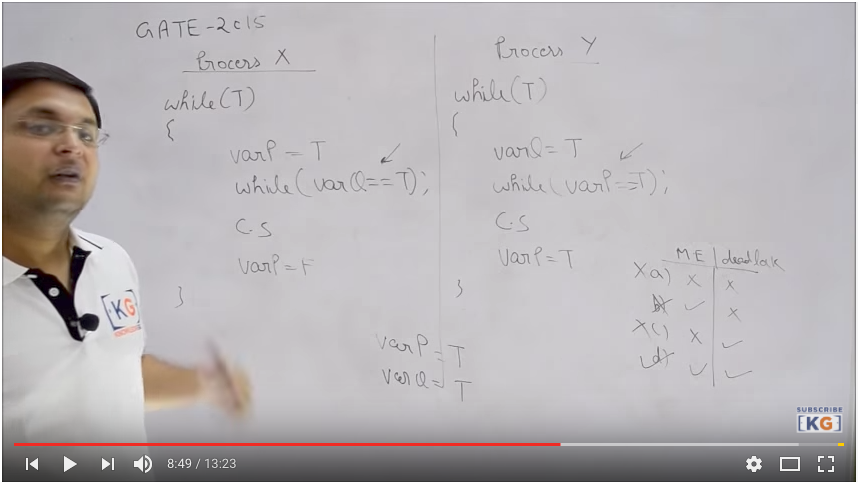 GATE-2015
Process X
while(T)
{
varP = T
while(varQ==T);
C.S
varP=F
}
Process Y
while(T)
{
varQ=T
while(varP==T);
C.S
varP=T
}
varP=T
varQ=T
ME deadlock
Xa) X X
b) ✓ X
Xc) X ✓
✓d) ✓ ✓
KG
SUBSCRIBE
[KG]
8:49 / 13:23